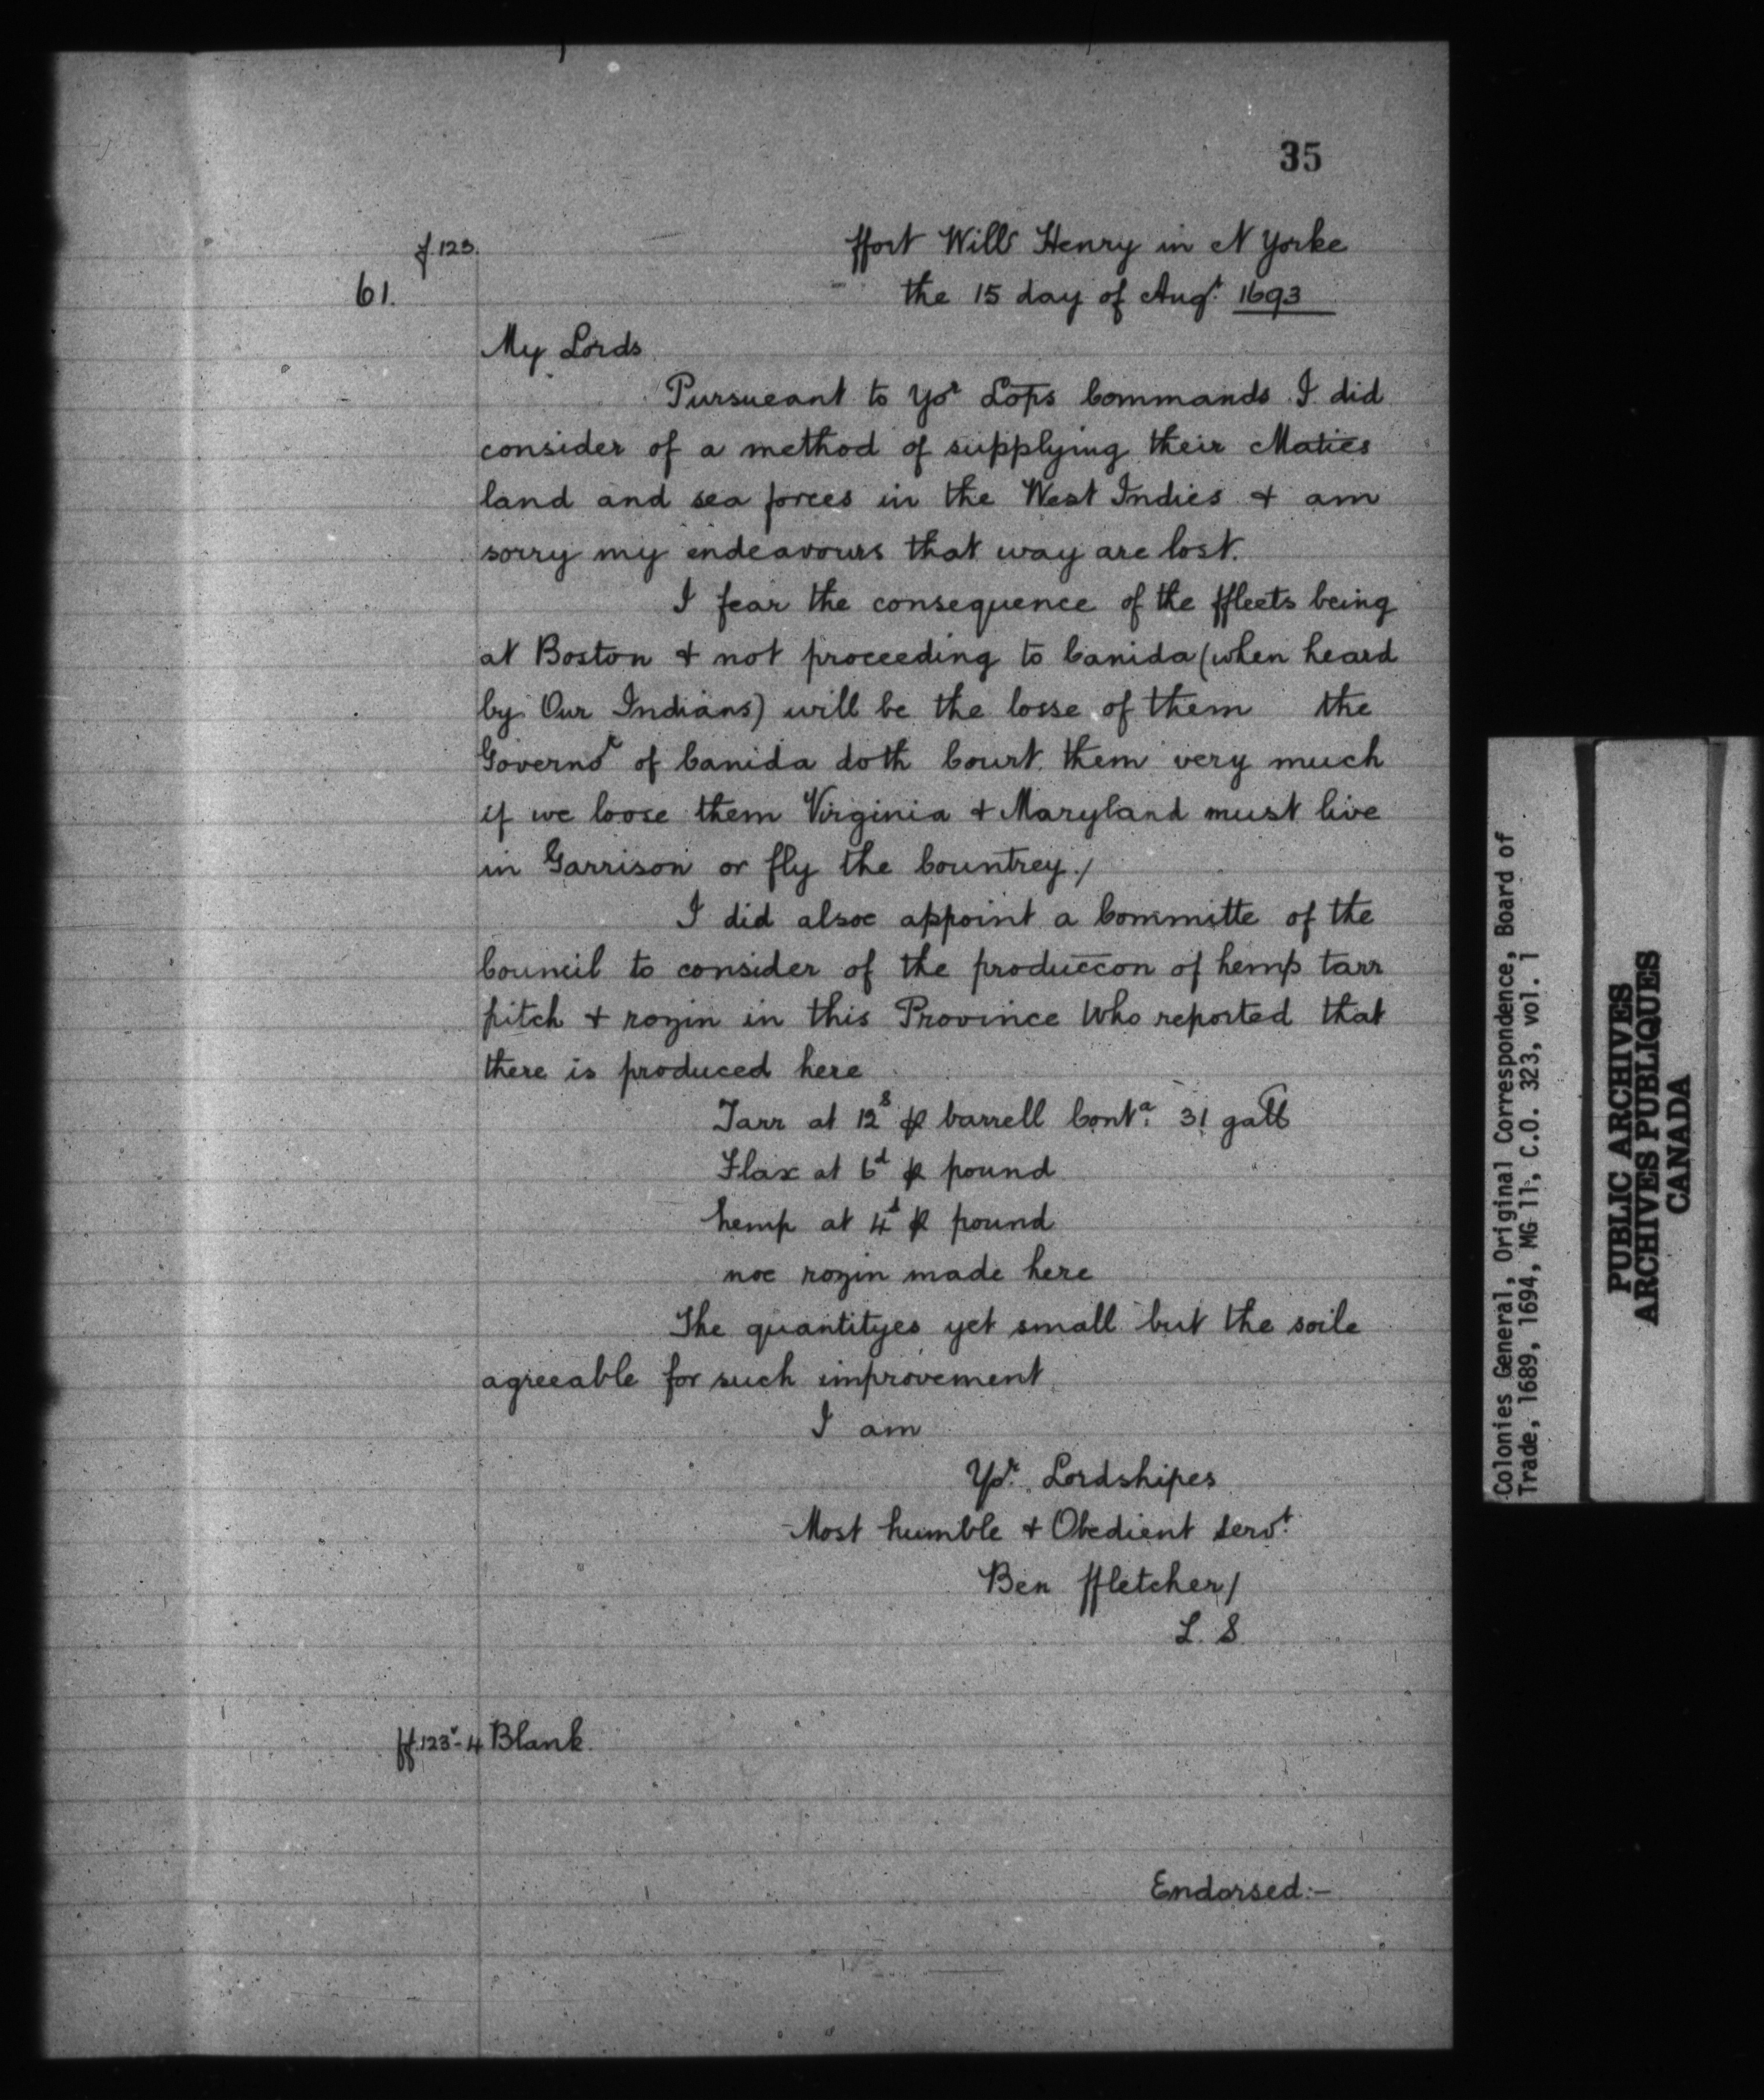 35
f.123.
ffort Willᵐ Henry in N Yorke
61.
the 15 day of Augᵗ. 1693
My Lords
Pursueant to Yoʳ Loᵖs Commands I did
consider of a method of supplying their Maties
land and sea forces in the West Indies & am
sorry my endeavours that way are lost.
I fear the consequence of the ffleets being
at Boston & not proceeding to Canida (when heard
by Our Indians) will be the losse of them the
Governoʳ of Canida doth Court them very much
if we loose them Virginia & Maryland must live
in Garrison or fly the Countrey./
I did alsoe appoint a Committe of the
Council to consider of the produccon of hemp tarr
pitch & rozin in this Province Who reported that
there is produced here
Tarr at 12ˢ ⅌ barrell Contᵃ. 31 gall
Flax at 6ᵈ ⅌ pound
hemp at 4ᵈ ⅌ pound
noe rozin made here
The quantityes yet small but the soile
agreeable for such improvement
I am
Yoʳ. Lordshipes
Most humble & Obedient servᵗ.
Ben ffletcher/
L. S.
ff.123ᵛ-4 Blank.
Endorsed:-
Colonies General, Original Correspondence, Board of
Trade, 1689, 1694, MG 11, C.O. 323, vol. 1
PUBLIC ARCHIVES
ARCHIVES PUBLIQUES
CANADA